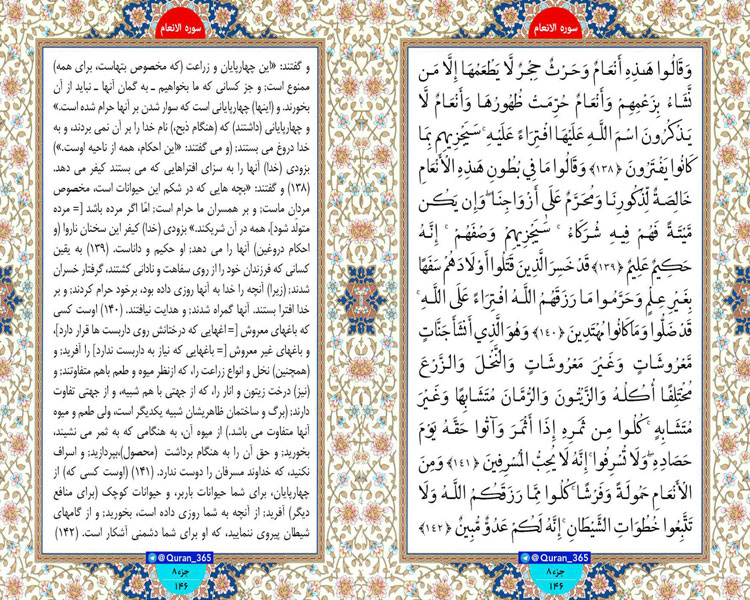 سوره الانعام
وَقَالُوا هَـٰذِهِ أَنْعَامٌ وَحَرْثٌ حِجْرٌ لَّا يَطْعَمُهَا إِلَّا مَن
نَّشَاءُ بِزَعْمِهِمْ وَأَنْعَامٌ حُرِّمَتْ ظُهُورُهَا وَأَنْعَامٌ لَّا
يَذْكُرُونَ اسْمَ اللَّـهِ عَلَيْهَا افْتِرَاءً عَلَيْهِ ۚ سَيَجْزِيهِم بِمَا
كَانُوا يَفْتَرُونَ ﴿۱۳۸﴾ وَقَالُوا مَا فِي بُطُونِ هَـٰذِهِ الْأَنْعَامِ
خَالِصَةٌ لِّذُكُورِنَا وَمُحَرَّمٌ عَلَىٰ أَزْوَاجِنَا ۖ وَإِن يَكُن
مَّيْتَةً فَهُمْ فِيهِ شُرَكَاءُ ۚ سَيَجْزِيهِمْ وَصْفَهُمْ ۚ إِنَّهُ
حَكِيمٌ عَلِيمٌ ﴿۱۳۹﴾ قَدْ خَسِرَ الَّذِينَ قَتَلُوا أَوْلَادَهُمْ سَفَهًا
بِغَيْرِ عِلْمٍ وَحَرَّمُوا مَا رَزَقَهُمُ اللَّـهُ افْتِرَاءً عَلَى اللَّـهِ ۚ
قَدْ ضَلُّوا وَمَا كَانُوا مُهْتَدِينَ ﴿۱۴۰﴾ وَهُوَ الَّذِي أَنشَأَ جَنَّاتٍ
مَّعْرُوشَاتٍ وَغَيْرَ مَعْرُوشَاتٍ وَالنَّخْلَ وَالزَّرْعَ
مُخْتَلِفًا أُكُلُهُ وَالزَّيْتُونَ وَالرُّمَّانَ مُتَشَابِهًا وَغَيْرَ
مُتَشَابِهٍ ۚ كُلُوا مِن ثَمَرِهِ إِذَا أَثْمَرَ وَآتُوا حَقَّهُ يَوْمَ
حَصَادِهِ ۖ وَلَا تُسْرِفُوا ۚ إِنَّهُ لَا يُحِبُّ الْمُسْرِفِينَ ﴿۱۴۱﴾ وَمِنَ
الْأَنْعَامِ حَمُولَةً وَفَرْشًا ۚ كُلُوا مِمَّا رَزَقَكُمُ اللَّـهُ وَلَا
تَتَّبِعُوا خُطُوَاتِ الشَّيْطَانِ ۚ إِنَّهُ لَكُمْ عَدُوٌّ مُّبِينٌ ﴿۱۴۲﴾
@Quran_365
جزء ۸
۱۴۶
سوره الانعام
و گفتند: «این چهارپایان و زراعت (که مخصوص بتهاست، برای همه)
ممنوع است؛ و جز کسانی که ما بخواهیم ـ به گمان آنها ـ نباید از آن
بخورند. و (اینها) چهارپایانی است که سوار شدن بر آنها حرام شده است.»
و چهارپایانی (داشتند) که (هنگام ذبح،) نام خدا را بر آن نمی بردند، و به
خدا دروغ می بستند؛ (و می گفتند: «این احکام، همه از ناحیه اوست.»)
بزودی (خدا) آنها را به سزای افتراهایی که می بستند کیفر می دهد.
(۱۳۸) و گفتند: «بچه هایی که در شکم این حیوانات است، مخصوص
مردان ماست؛ و بر همسران ما حرام است؛ امّا اگر مرده باشد [= مرده
متولّد شود]، همه در آن شریکند.» بزودی (خدا) کیفر این سخنان ناروا (و
احکام دروغین) آنها را می دهد؛ او حکیم و داناست. (۱۳۹) به یقین
کسانی که فرزندان خود را از روی سفاهت و نادانی کشتند، گرفتار خسران
شدند؛ (زیرا) آنچه را خدا به آنها روزی داده بود، برخود حرام کردند؛ و بر
خدا افترا بستند. آنها گمراه شدند؛ و هدایت نیافتند. (۱۴۰) اوست کسی
که باغهای معروش [= اغهایی که درختانش روی داربست ها قرار دارد]،
و باغهای غیر معروش [= باغهایی که نیاز به داربست ندارد] را آفرید؛ و
(همچنین) نخل و انواع زراعت را، که ازنظر میوه و طعم باهم متفاوتند؛ و
(نیز) درخت زیتون و انار را، که از جهتی با هم شبیه، و از جهتی تفاوت
دارند؛ (برگ و ساختمان ظاهریشان شبیه یکدیگر است، ولی طعم و میوه
آنها متفاوت می باشد.) از میوه آن، به هنگامی که به ثمر می نشیند،
بخورید؛ و حق آن را به هنگام برداشت (محصول)،بپردازید؛ و اسراف
نکنید، که خداوند مسرفان را دوست ندارد. (۱۴۱) (اوست کسی که) از
چهارپایان، برای شما حیوانات باربر، و حیوانات کوچک (برای منافع
دیگر) آفرید؛ از آنچه به شما روزی داده است، بخورید؛ و از گامهای
شیطان پیروی ننمایید، که او برای شما دشمنی آشکار است. (۱۴۲)
@Quran_365
جزء ۸
۱۴۶